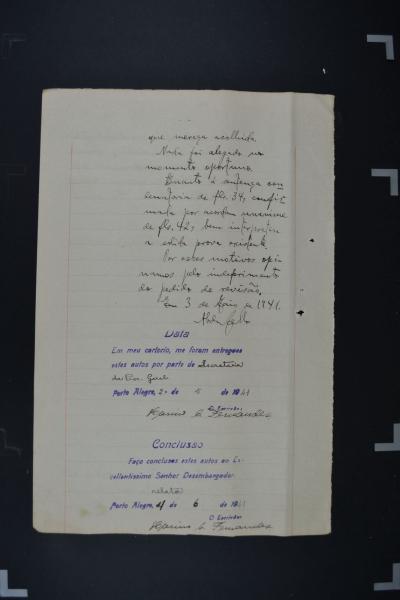 que mereça acolhida.
Nada foi alegado no
momento oportuno.
Quanto à sentença con
denatoria de fls. 34, confir
mada por acordam unanime
de fls. 42, bem interpretou
a
prova
Por esses motivos opi
namos pelo indeferimento
do pedido de revisão.
Em 3 de Maio de 1941.
Data
Em meu cartorio, me foram entregues
estes autos por parte de Secretaria
da Proc. Geral
Porto Alegre, 20 de 5 de 1941
O Escrivão
Fernandes
Conclusão
Faço conclusos estes autos ao Ex-
cellentissimo Senhor Desembargador
relator
Porto Alegre, de 6 de 1941
O Escrivão
Fernandes